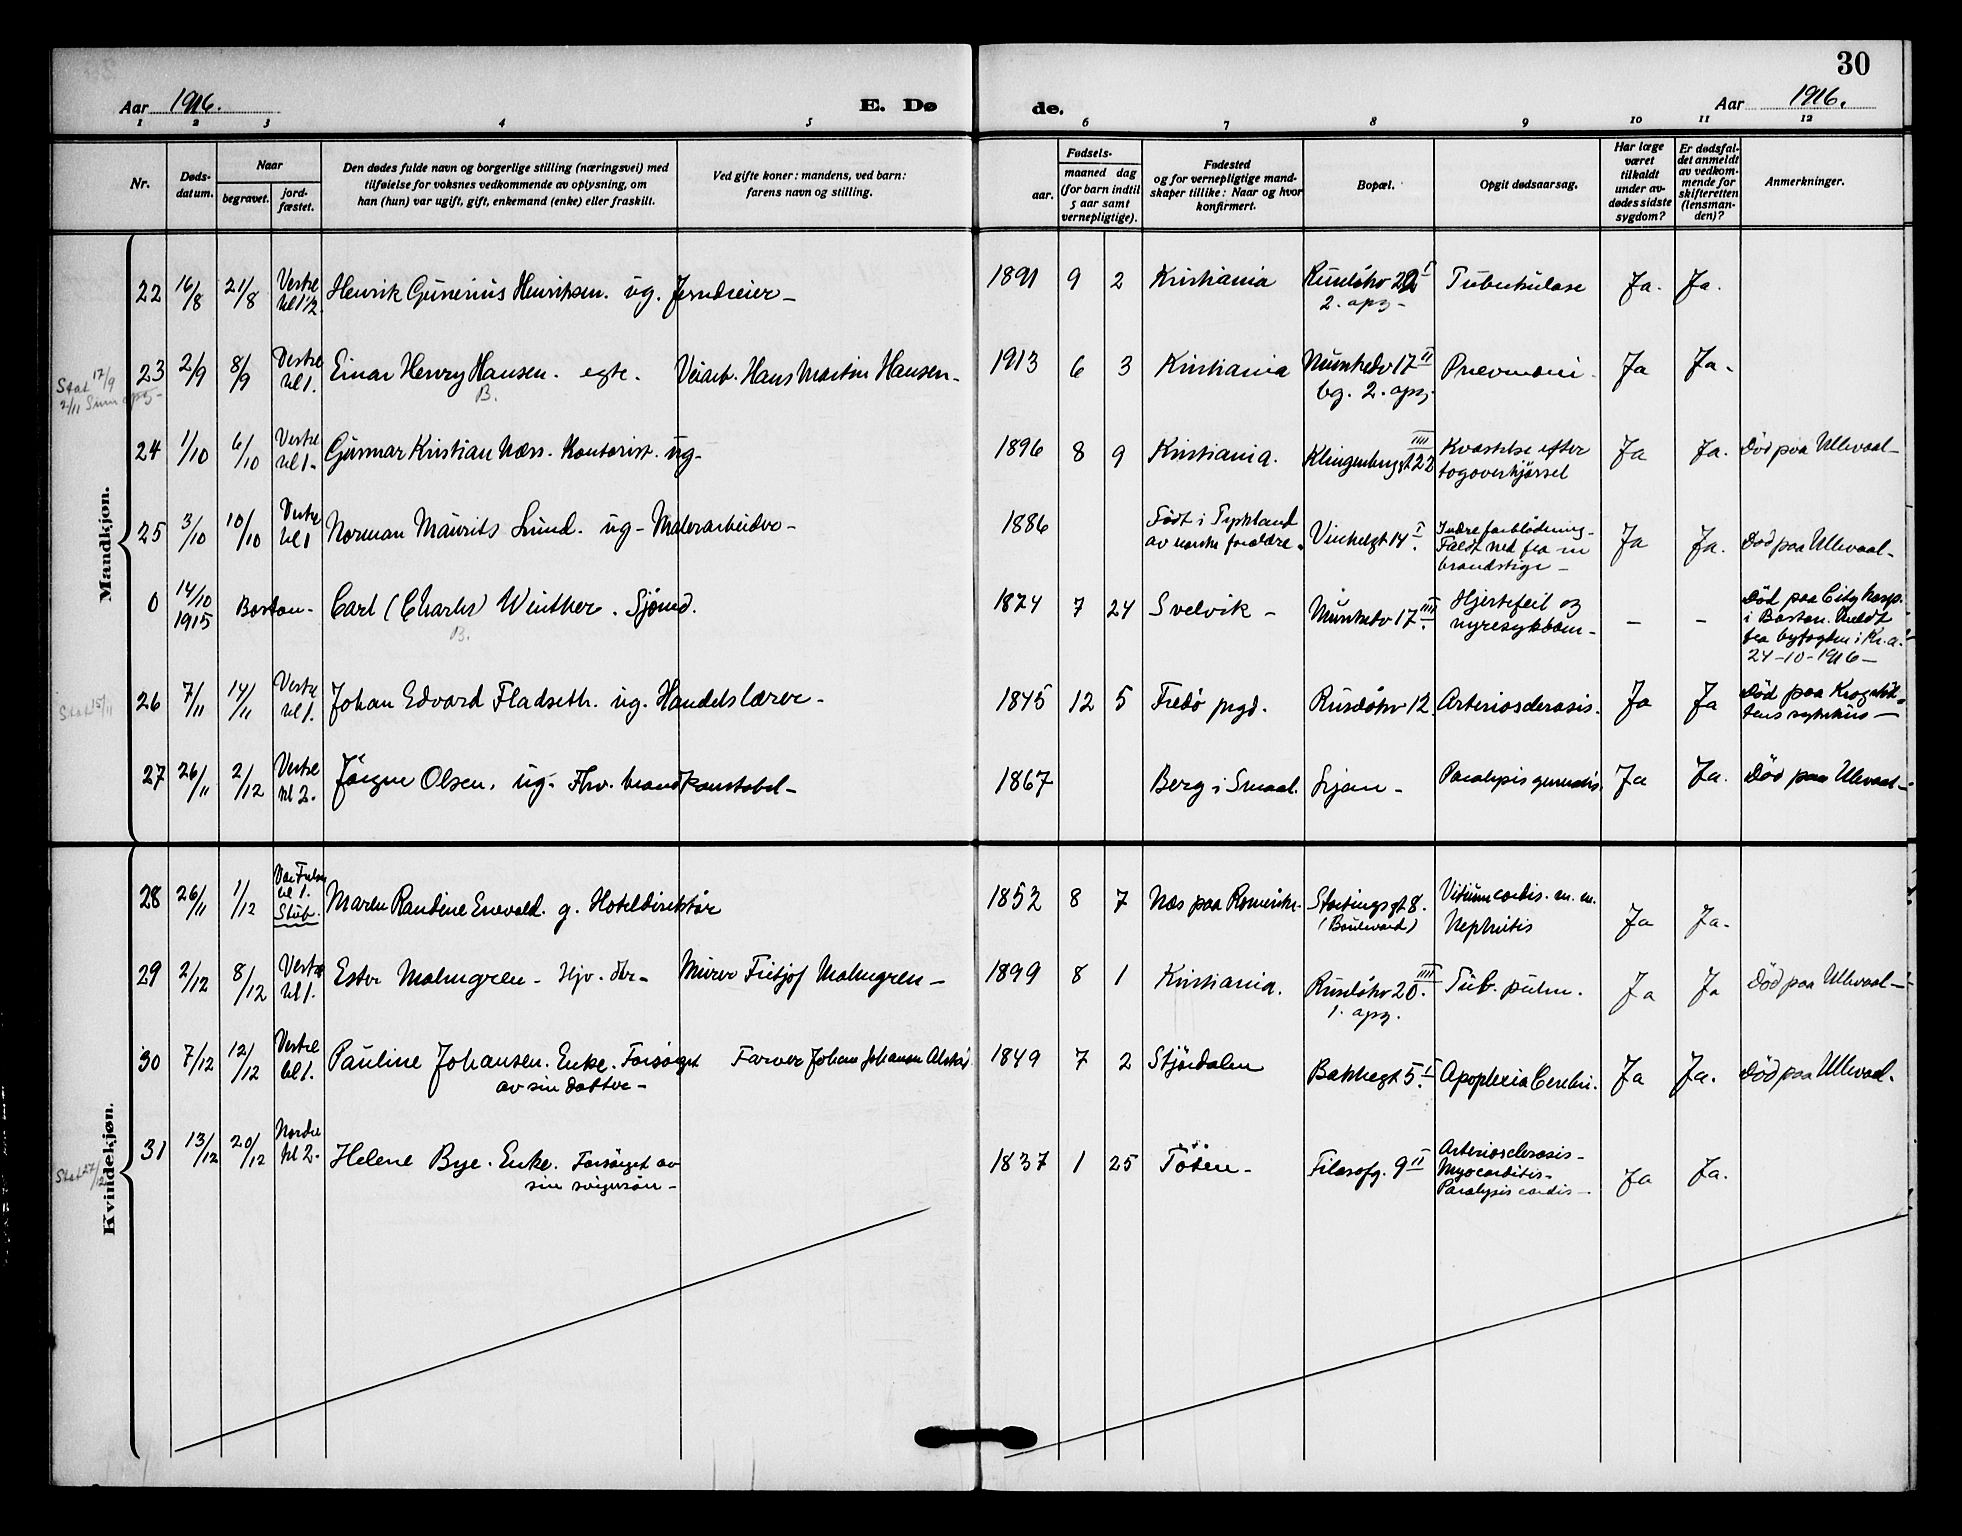 30
Aar 1916.
E. Dø
de.
Aar 1916.
1 2 3 4 5 6 7 8 9 10 11 12
Nr.
Døds-
datum.
Naar
begravet.
jord-
fæstet.
Den dødes fulde navn og borgerlige stilling (næringsvei) med
tilføielse for voksnes vedkommende av oplysning, om
han (hun) var ugift, gift, enkemand (enke) eller fraskilt.
Ved gifte koner: mandens, ved barn:
farens navn og stilling.
Fødsels-
aar.
maaned dag
(for barn indtil
5 aar samt
vernepligtige).
Fødested
og for vernepligtige mand-
skaper tillike: Naar og hvor
konfirmert.
Bopæl.
Opgit dødsaarsag.
Har læge
været
tilkaldt
under av-
dødes sidste
sygdom?
Er dødsfal-
det anmeldt
av vedkom-
mende for
skifteretten
(lensman-
den)?
Anmerkninger.
Mandkjøn.
22 16/8 21/8 Vestre kl 1 1/2. Henrik Gunerius Henriksen. ug. 1891 9 2 Kristiania Ruseløkv 22 I
2. opg- Tuberkulose Ja. Ja.
Stat 17/9
2/11
23 2/9 8/9 Vestre kl 1. Einar Henry Hansen. egte. Veiarb. Hans Martin Hansen. 1913 6 3 Kristiania Munkedv 17 II
bg. 2. opg. Pnevmoni Ja Ja.
B.
24 1/10 6/10 Vestre kl 1- Gunnar Kristian Næss. Kontorist. ug. 1896 8 9 Kristiania. Klingenberggt 22 IIII Kvæstelse efter
togoverkjørsel Ja Ja. Død paa Ullevaal-
25 3/10 10/10 Vestre kl 1 Norman Maurits Lund. ug- Malerarbeider- 1886 Født i Tyskland
av norske forældre. Vinkelgt 14 I. Indre forblødning-
Faldt ned fra en
brandstige- Ja Ja. Død paa Ullevaal-
0 14/10
1915 Boston- Carl (Charles) Winther. Sjømd. 1874 7 24 Svelvik- Munkedv 17 IIII. Hjertefeil og
nyresykdom- - - Død paa City hosp.
i Boston. Meldt
fra byfogden i Kr.a.
24-10-1916-
B.
Stat 15/11
26 7/11 14/11 Vestre kl 1. Johan Edvard Fladseth. ug. Handelslærer- 1845 12 5 Fredø prgd. Ruseløkv 12. Arteriosclerosis. Ja Ja Død paa Krogstøt-
tens sykehus-
27 26/11 2/12 Vestre kl 2. Jørgen Olsen. ug- Fhv. brandkonstabel- 1867 Berg i Smaal. Ljan- Paralysis generalis. Ja Ja. Død paa Ullevaal-
Kvindekjøn.
28 26/11 1/12 Vor Frelser kl 1.
Stub. Maren Randine Enevold. g. Hoteldirektør 1852 8 7 Næs paa Romerike. Stortingsgt 8.
(Boulevard) Vitium cordis. m. m.
Nephritis Ja Ja.
29 2/12 8/12 Vestre kl 1. Ester Malmgren- Hjv. dtr- Murer Fritjof Malmgren- 1899 8 1 Kristiania. Ruseløkv 20 IIII.
1. opg. Tub. pulm. Ja Ja Død paa Ullevaal-
30 7/12 12/12 Vestre kl 1. Pauline Johansen. Enke. Forsørget
av sin datter- Farver Johan Johansen 1849 7 2 Stjørdalen Bakkegt 5 I. Apoplexia Cerebri. Ja Ja. Død paa Ullevaal.
Stat 27/12
31 13/12 20/12 Nordre kl 2. Helene Bye. Enke. Forsørget av
sin svigersøn- 1837 1 25 Toten- Filosofg. 9 II Arteriosclerosis-
Myocarditis-
Paralysis cordis- Ja Ja.